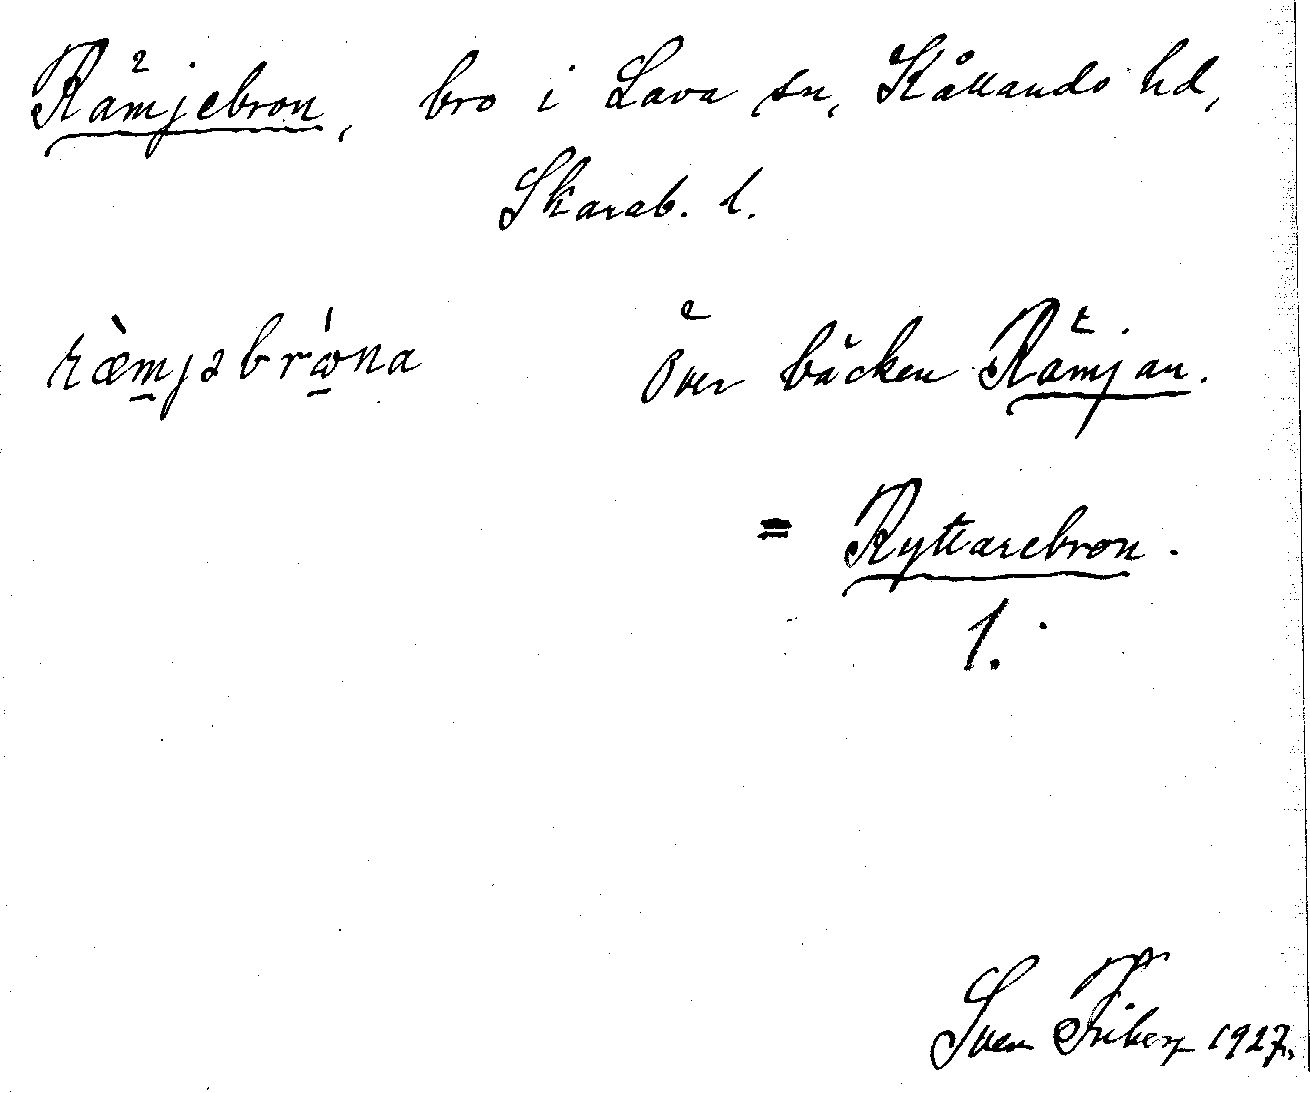 Rämjebron, bro i Lava sn, Kållands hd,
Skarab. l.
ræ̀mjəbrώna över bäcken Rämjan.
= Ryttarebron.
1.
Sven Friberg 1927.